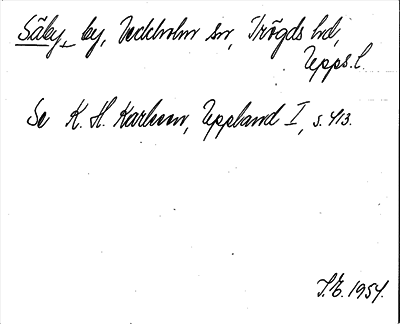 Säby, by, Veckholm sn, Trögds hd,
Upps. l.
Se K. H. Karlsson, Uppland I, s. 413.
1954.